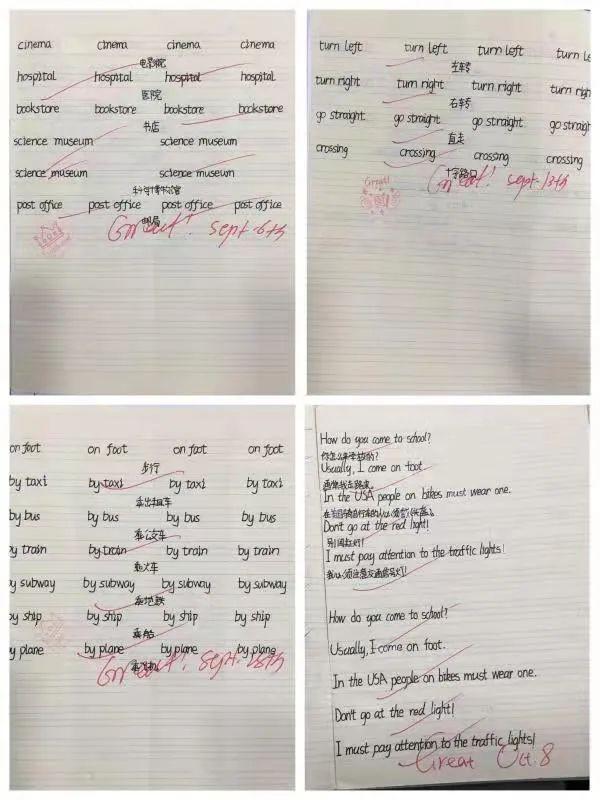 cinema cinema cinema cinema
电影院
hospital hospital hospital hospital
医院
bookstore bookstore bookstore bookstore
书店
science museum science museum
science museum science museum
科学博物馆
post office post office post office post office
邮局
Great! sept. 6th
turn left turn left turn left turn left
左转
turn right turn right turn right turn right
右转
go straight go straight go straight go straight
直走
crossing crossing crossing crossing
十字路口
Great! sept. 13th
Great!
on foot on foot on foot on foot
步行
by taxi by taxi by taxi by taxi
乘出租车
by bus by bus by bus by bus
乘公交车
by train by train by train by train
乘火车
by subway by subway by subway by subway
乘地铁
by ship by ship by ship by ship
乘船
by plane by plane by plane by plane
Great! sept. 28th
How do you come to school?
你怎么来学校的?
Usually, I come on foot.
通常我走路来。
In the USA people on bikes must wear one.
Don't go at the red light!
别闯红灯!
I must pay attention to the traffic lights!
我必须注意交通信号灯!
How do you come to school?
Usually, I come on foot.
In the USA people on bikes must wear one.
Don't go at the red light!
I must pay attention to the traffic lights!
Great Oct. 8